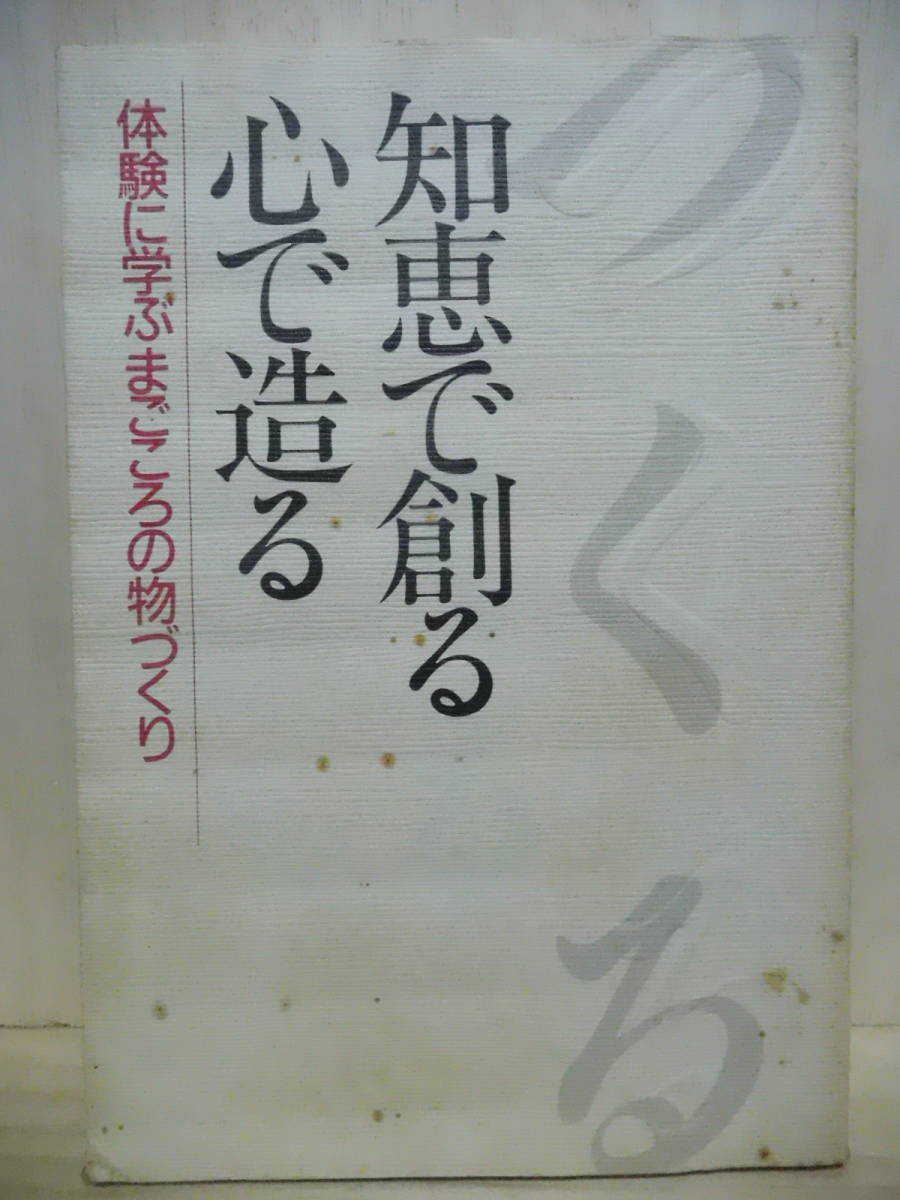 つくる
知恵で創る
心で造る
体験に学ぶまごころの物づくり